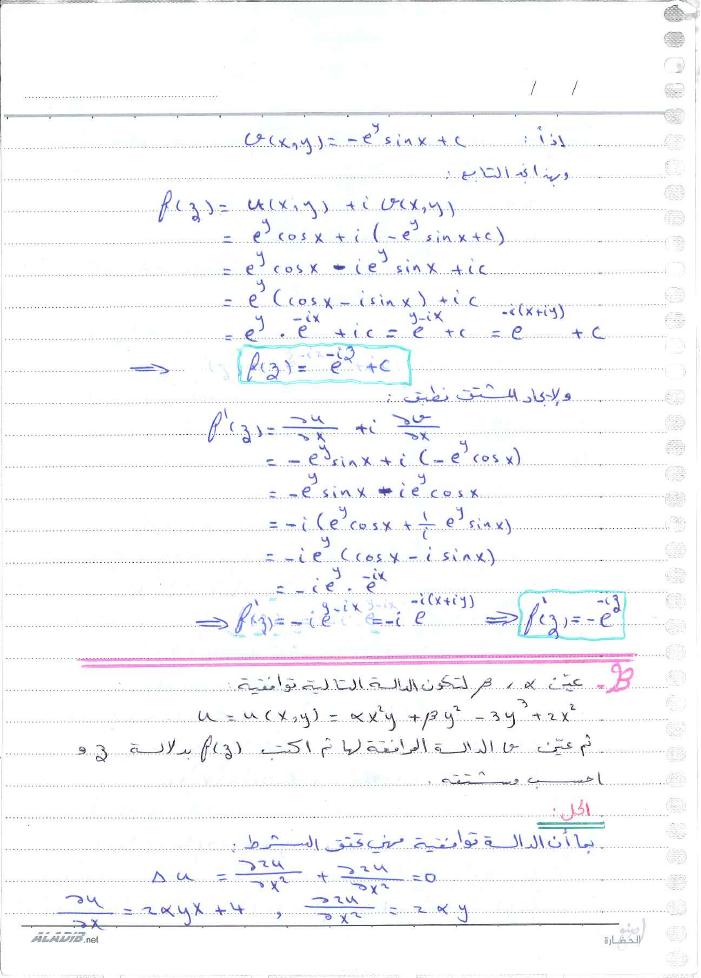 / /
إذاً : v(x,y) = -e^y sinx + c
وبهذا نجد التابع :
f(z) = u(x,y) + i v(x,y)
= e^y cosx + i (-e^y sinx + c)
= e^y cosx - ie^y sinx + ic
= e^y (cosx - isinx) + ic
= e^y . e^{-ix} + ic = e^{y-ix} + c = e^{-i(x+iy)} + c
⇒ f(z) = e^{-iz} + c
ولإيجاد المشتق نطبق :
f'(z) = ∂u/∂x + i ∂v/∂x
= -e^y sinx + i (-e^y cosx)
= -e^y sinx - ie^y cosx
= -i (e^y cosx + 1/i e^y sinx)
= -ie^y (cosx - i sinx)
= -ie^y . e^{-ix}
⇒ f'(z) = -i e^{y-ix} = -i e^{-i(x+iy)} ⇒ f'(z) = -e^{-iz}
B- عيّن α ، β لتكون الدالة التالية توافقية :
u = u(x,y) = αx²y + βy² - 3y³ + 2x²
ثم عيّن v الدالة المرافقة لها ثم اكتب f(z) بدلالة z و
احسب مشتقه .
الحل :
بما أن الدالة توافقية فهي تحقق الشرط :
Δu = ∂²u/∂x² + ∂²u/∂x² = 0
∂u/∂x = 2αyx + 4 , ∂²u/∂x² = 2αy
ALADIB.net
الحضارة